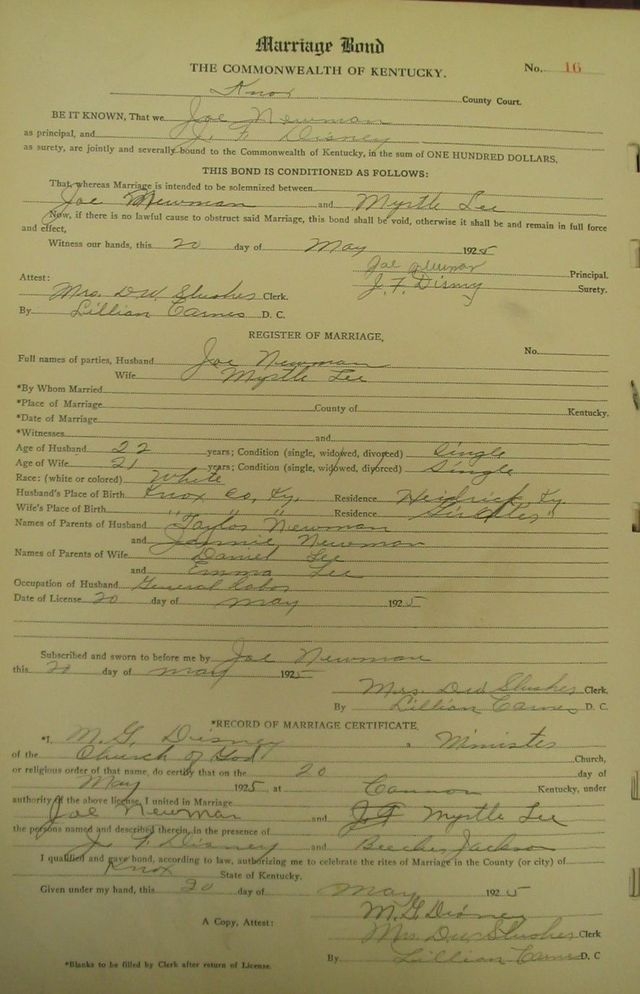 Marriage Bond
THE COMMONWEALTH OF KENTUCKY. No. 16
Knox County Court.
BE IT KNOWN, That we Joe Newman
as principal, and J. F. Disney
as surety, are jointly and severally bound to the Commonwealth of Kentucky, in the sum of ONE HUNDRED DOLLARS,
THIS BOND IS CONDITIONED AS FOLLOWS:
That, whereas Marriage is intended to be solemnized between
Joe Newman and Myrtle Lee
Now, if there is no lawful cause to obstruct said Marriage, this bond shall be void, otherwise it shall be and remain in full force
and effect,
Witness our hands, this 20 day of May 1925
Joe Newman Principal.
Attest: J. F. Disney Surety.
Mrs. D.W. Slusher Clerk.
By Lillian Carnes D. C.
REGISTER OF MARRIAGE,
No.
Full names of parties, Husband Joe Newman
Wife Myrtle Lee
*By Whom Married
*Place of Marriage County of Kentucky.
*Date of Marriage
*Witnesses and
Age of Husband 22 years; Condition (single, widowed, divorced) Single
Age of Wife 21 years; Condition (single, widowed, divorced) Single
Race: (white or colored) White
Husband's Place of Birth Knox Co, Ky. Residence Heidrick, Ky.
Wife's Place of Birth " " " Residence
Names of Parents of Husband Taylor Newman
and Newman
Names of Parents of Wife Daniel Lee
and Emma Lee
Occupation of Husband General labor
Date of License 20 day of May 1925
Subscribed and sworn to before me by Joe Newman
this 20 day of May 1925
Mrs. D.W. Slusher Clerk.
By Lillian Carnes D. C
*RECORD OF MARRIAGE CERTIFICATE,
*I, M. G. Disney a Minister
of the Church of God Church,
or religious order of that name, do certify that on the 20 day of
May 1925, at Cannon Kentucky, under
authority of the above license, I united in Marriage
Joe Newman and Myrtle Lee
the persons named and described therein, in the presence of
J. F. Disney and Beecher Jackson
I qualified and gave bond, according to law, authorizing me to celebrate the rites of Marriage in the County (or city) of
Knox State of Kentucky.
Given under my hand, this 20 day of May 1925
M. G. Disney
A Copy, Attest: Mrs. D.W. Slusher Clerk
By Lillian Carnes D. C
*Blanks to be filled by Clerk after return of License.